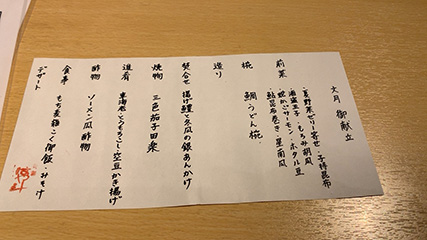 文月 御献立
前菜
・夏野菜ゼリー寄せ・子持昆布
・海宝玉子・もろみ胡瓜
サーモン・ホタル豆
・鮎昆布巻き・星南瓜
椀 鯛うどん椀
造り
焚合せ 揚げ鱧と冬瓜の銀あんかけ
焼物 三色茄子田楽
進肴 車海老・とうもろこし・空豆かき揚げ
酢物 ソーメン瓜酢物
食事 もち麦麺こく御飯・みそ汁
デザート